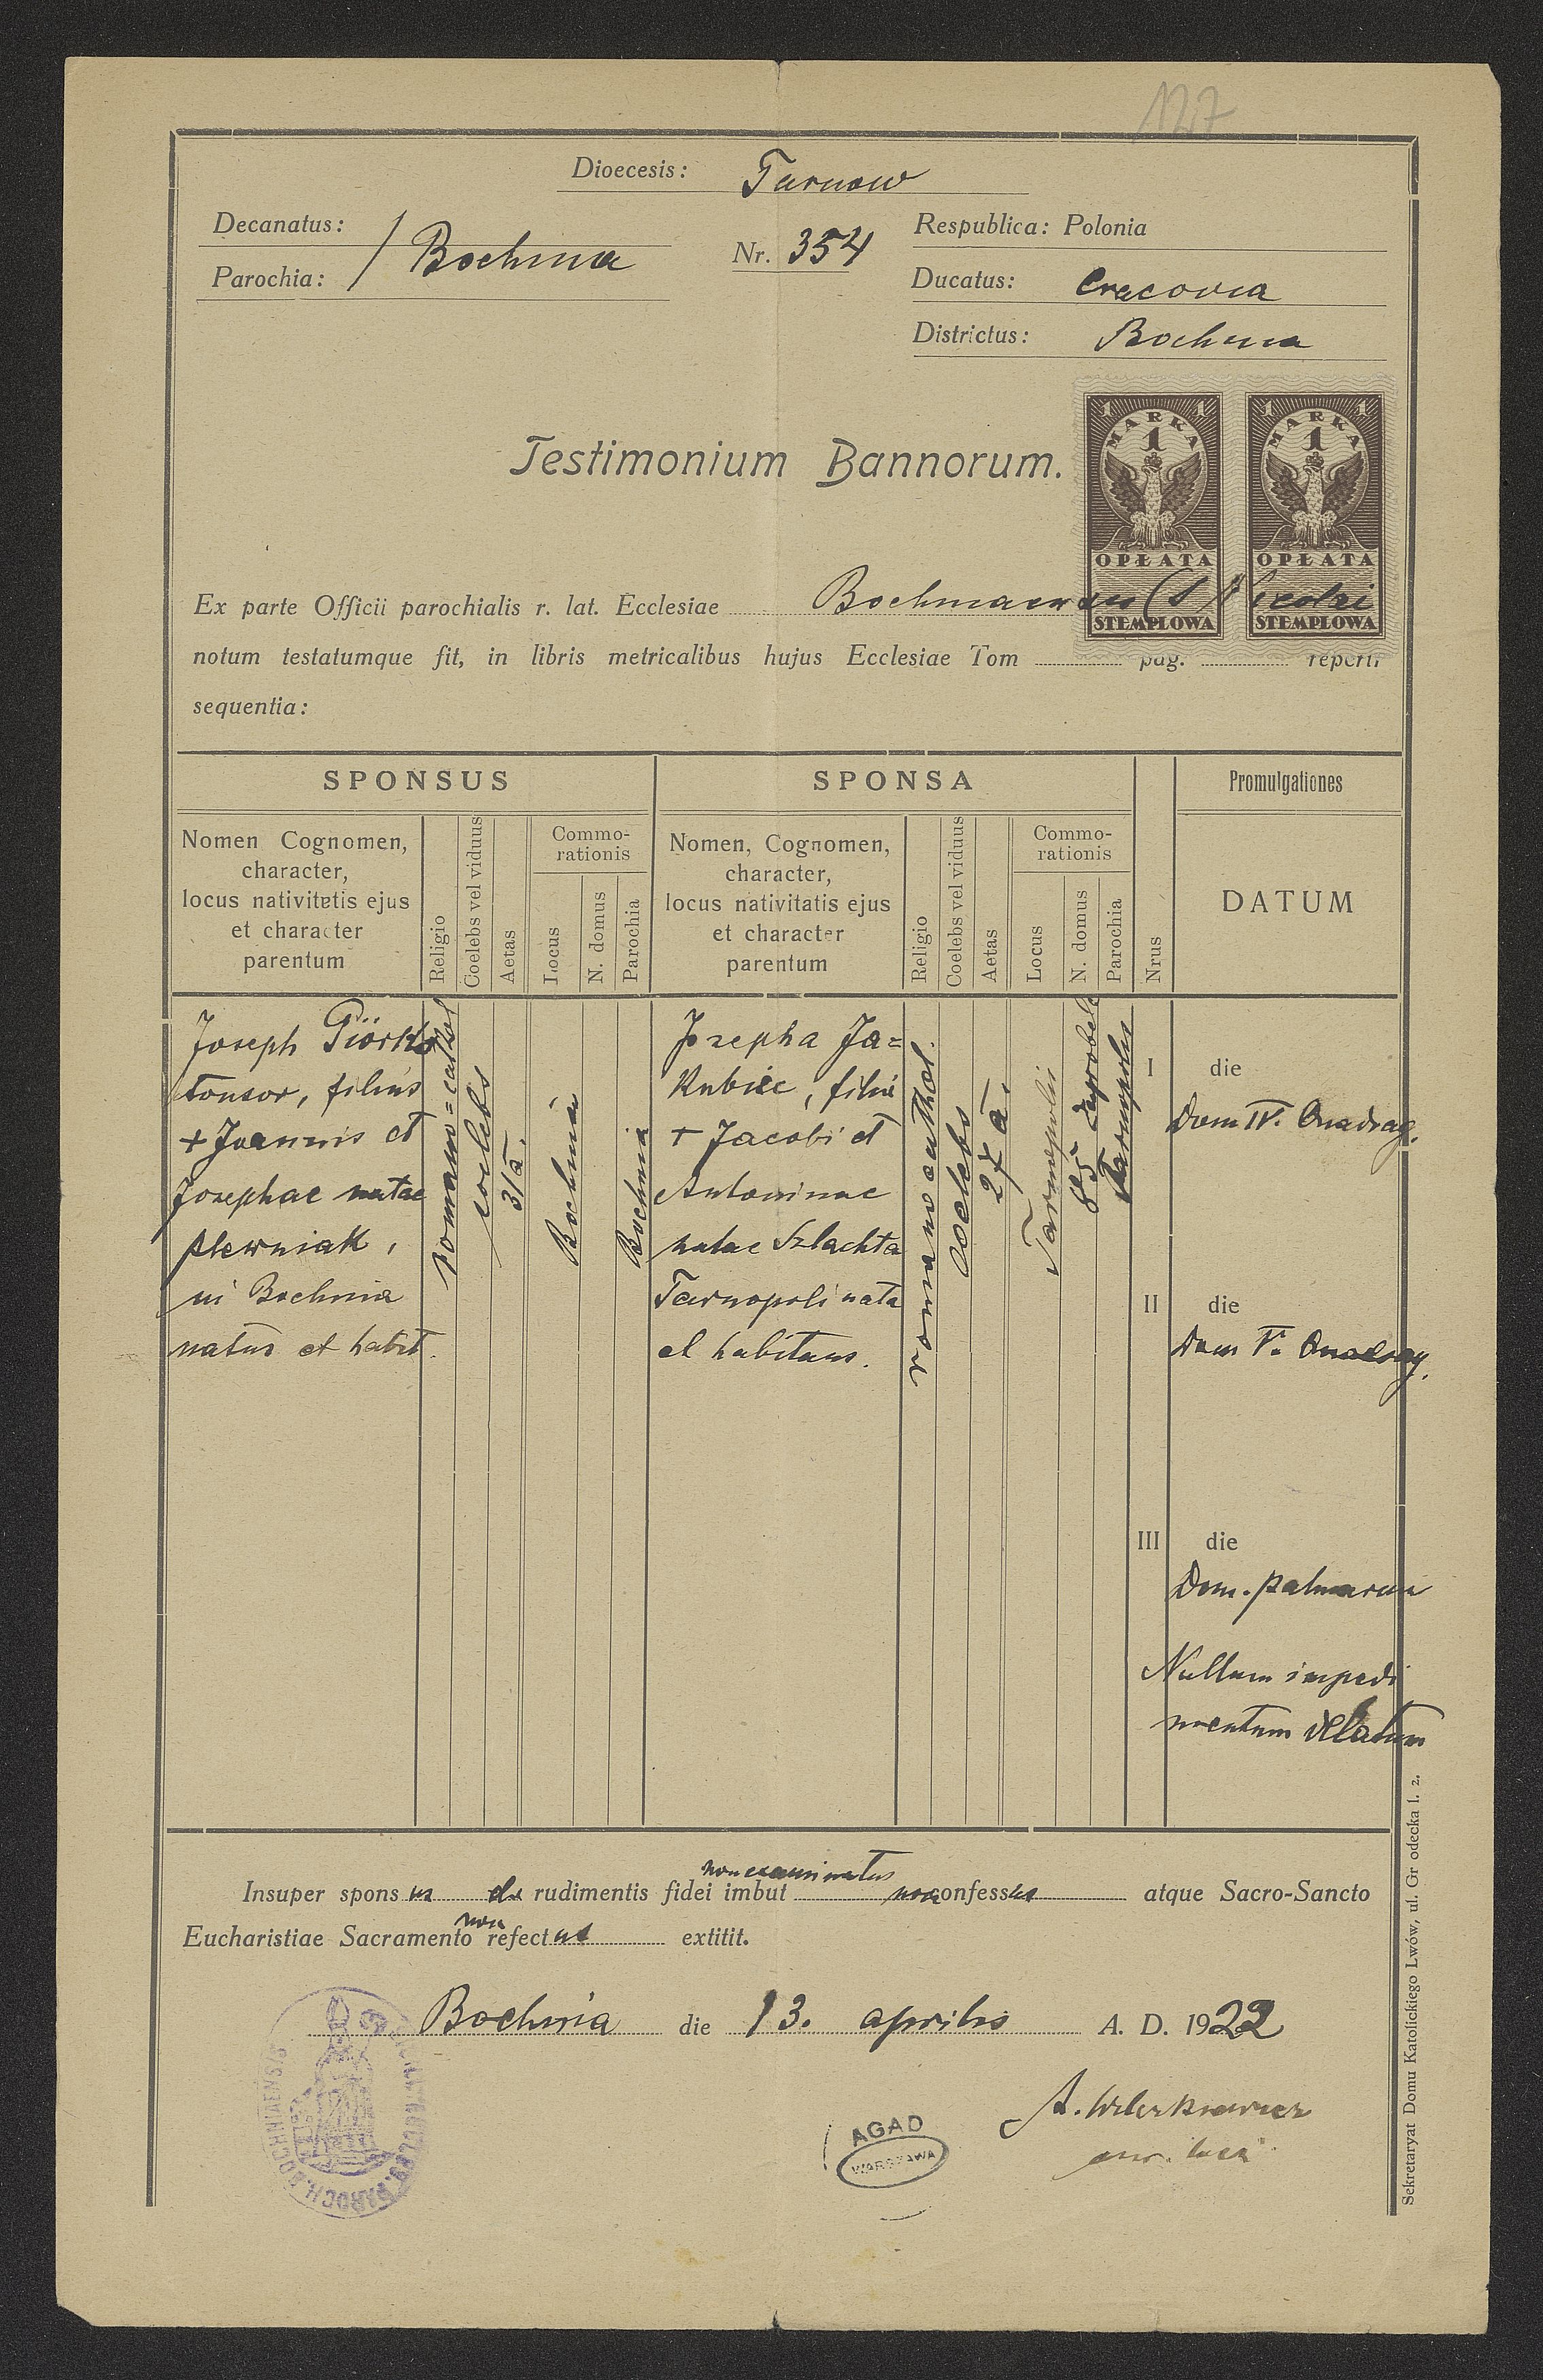 127
Dioecesis: Tarnow
Decanatus:
Parochia: Bochnia
Nr. 354
Respublica: Polonia
Ducatus: Cracovia
Districtus: Bochnia
Testimonium Bannorum.
1 1
MARKA
1
OPŁATA
STEMPLOWA
1 1
MARKA
1
OPŁATA
STEMPLOWA
Ex parte Officii parochialis r. lat. Ecclesiae Bochniaensis (S Nicolai
notum testatumque fit, in libris metricalibus hujus Ecclesiae Tom pag. reperti
sequentia:
SPONSUS
Nomen Cognomen,
character,
locus nativitatis ejus
et character
parentum
Religio
Coelebs vel viduus
Aetas
Commo-
rationis
Locus
N. domus
Parochia
SPONSA
Nomen, Cognomen,
character,
locus nativitatis ejus
et character
parentum
Religio
Coelebs vel viduus
Aetas
Commo-
rationis
Locus
N. domus
Parochia
Nrus
Promulgationes
DATUM
Joseph
tonsor, filius
+ Joannis et
Josephae natae
Plewniak,
in Bochnia
natus et habit.
romano=cathol
coelebs
31 a.
Bochnia
Bochnia
Josepha Ja=
kubiec, filia
+ Jacobi et
Antoninae
natae Szlachta
Tarnopoli nata
et habitans.
romano cathol.
coelebs
27 a.
Tarnopolis
85
Tarnopolis
I die
Dom IV. Quadrag.
II die
Dom V. Quadrag.
III die
Dom. palmarum
Nullum impedi
mentum delatum
non examinatus
Insuper spons us de rudimentis fidei imbut non confessus atque Sacro-Sancto
non
Eucharistiae Sacramento refect us extitit.
Bochnia die 13. aprilis A. D. 1922
PAROCH. BOCHNIAENSIS
AGAD
WARSZAWA
Sekretaryat Domu Katolickiego Lwów, ul. Gr odecka l. 2.